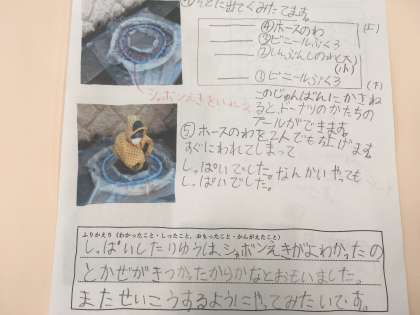 に出てくみたてます。
④ホースのわ
③ビニールぶくろ
②しんぶんしのわ(大)
(小)
①ビニールぶくろ
(上)
(下)
シャボンえきをいれる
このじゅんばんにかさね
ると、ドーナツのかたちの
プールができます。
⑤ホースのわを2人でもち上げます。
すぐにわれてしまって
しっぱいでした。なんかいやっても
しっぱいでした。
ふりかえり(わかったこと・しったこと、おもったこと・かんがえたこと)
しっぱいしたりゆうは、シャボンえきがよわかったの
とかぜがきつかったからかなとおもいました。
またせいこうするようにやってみたいです。